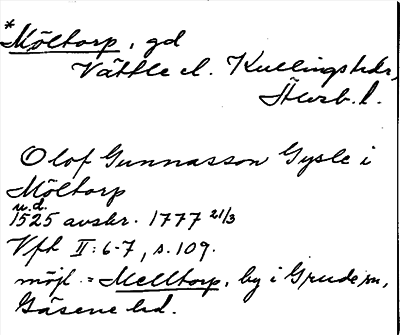 *Möltorp, gd
Vättle el. Kullings hdr,
Älvsb. l.
Olof Gunnasson Gysle i
Möltorp
u.d.
1525 avskr. 1777 21/3
Vft II: 6-7, s. 109.
möjl. = Melltorp, by i Grude sn,
Gäsene hd.